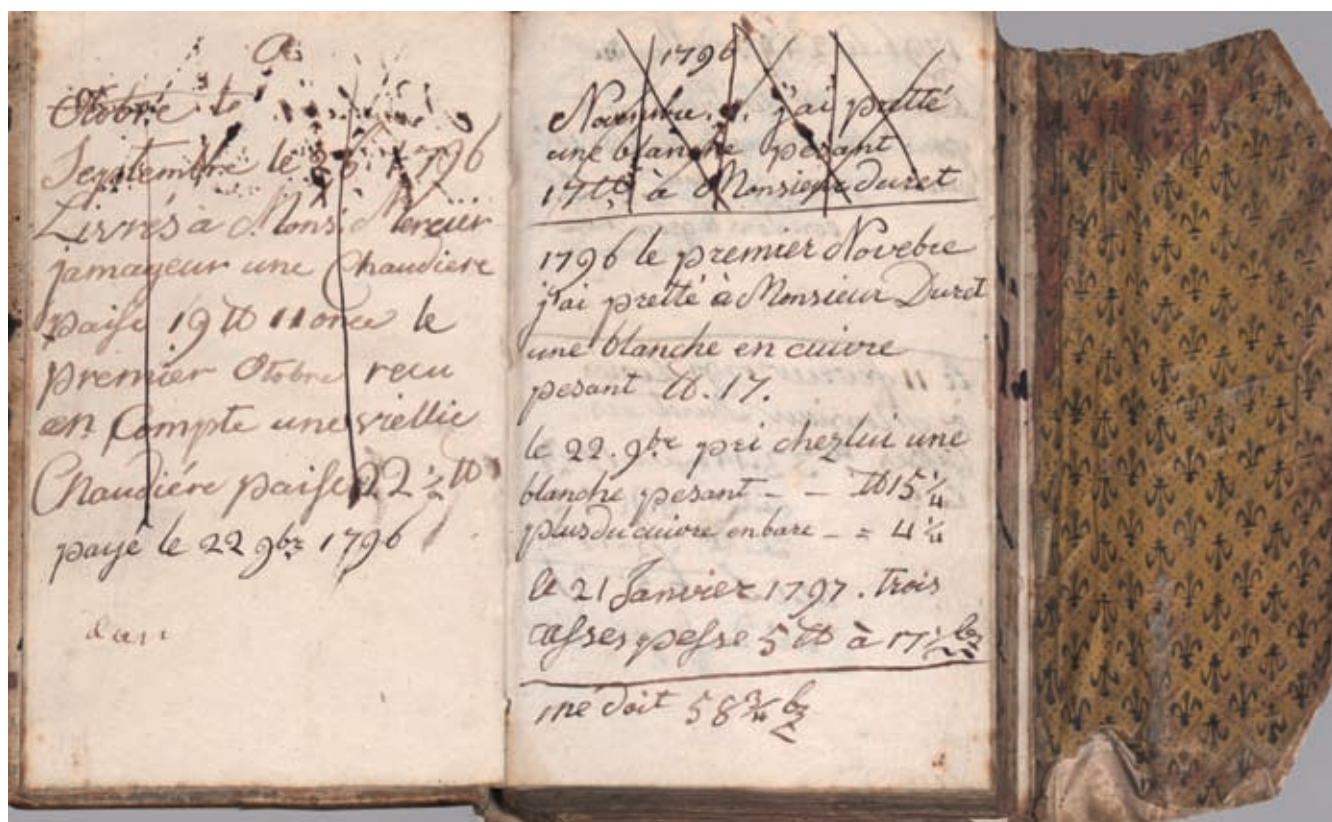 a
Otobre le
Septembre le 23 1796
Livrés à Mons. Mercier
jamageur une Chaudiere
paise 19 ℔ 11 once le
premier Otobre recu
en Compte une viellie
Chaudiére paise 22 ½ ℔
payé le 22 9bre 1796
dan
1796
Novembre. 1. j'ai pretté
une blanche pesant
17 ℔ à Monsieur Duret
1796 le premier Novebre
j'ai pretté à Monsieur Duret
une blanche en cuivre
pesant ℔. 17.
le 22. 9bre pri chez lui une
blanche pesant - - ℔ 15 ¼
plus du cuivre en bare - = 4 ¼
le 21 Janvier 1797. trois
casses pesse 5 ℔ à 17 ½ bz
me doit 58 ¾ bz